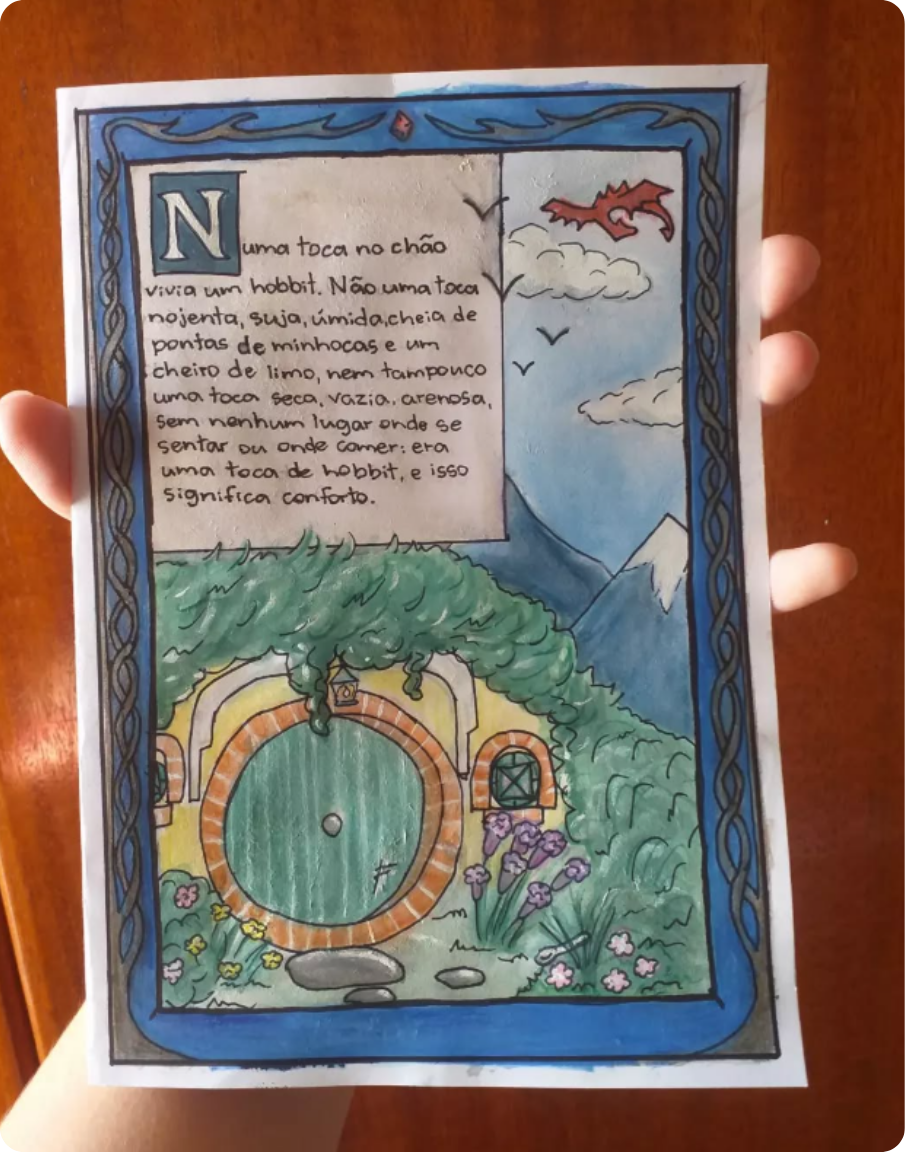 Numa toca no chão
vivia um hobbit. Não uma toca
nojenta, suja, úmida, cheia de
pontas de minhocas e um
cheiro de limo, nem tampouco
uma toca seca, vazia, arenosa,
sem nenhum lugar onde se
sentar ou onde comer: era
uma toca de hobbit, e isso
significa conforto.